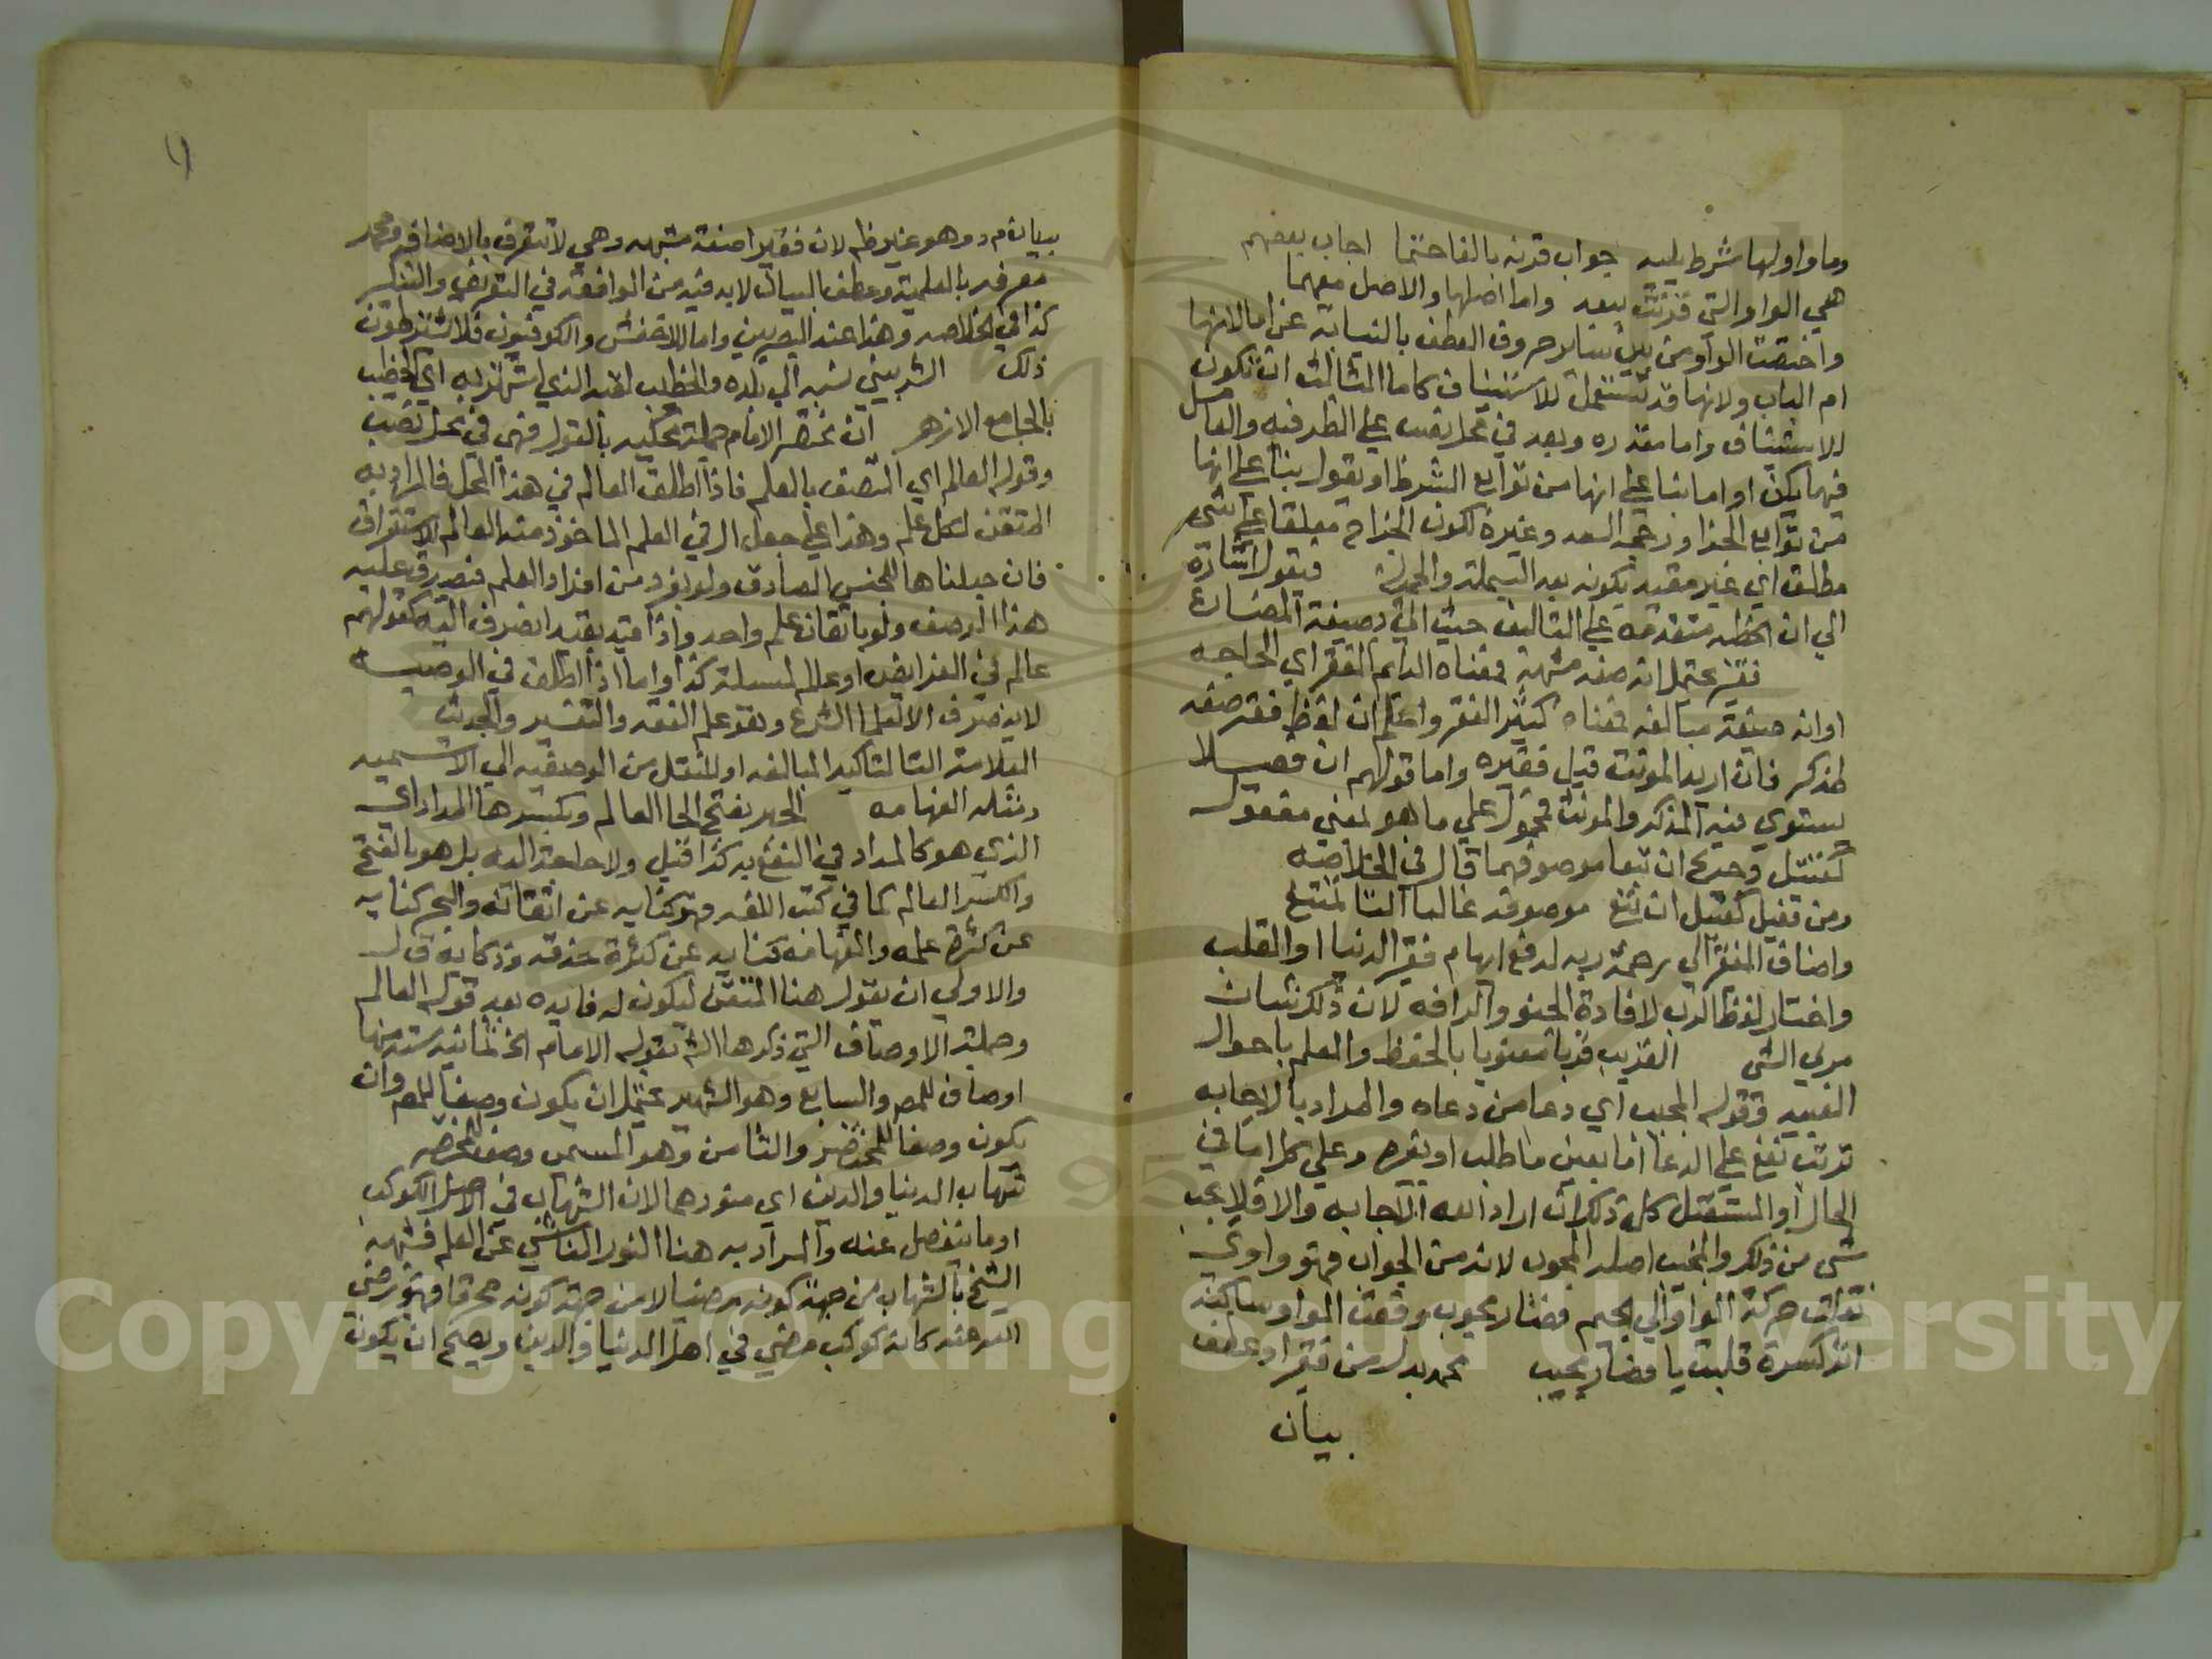 وما واو لها شرط يليه جواب قرنه بالفا حتما اجاب بعضهم
هي الواو التي قرنت ببعد واما اصلها والاصل مهما
واختصت الواو من بين ساير حروف العطف بالنيابة عن اما لانها
ام الباب ولانها قد تستعمل للاستيناف كاما الثالث ان تكون
للاستيناف واما مقدره وبعد في محل نصب علي الظرفيه والعامل
فيها يكن او اما بنا علي انها من توابع الشرط او يقول بناء علي انها
من توابع الجزا ورجحه السعد وغيره لكون الجزاح معلقا علي شي
مطلق اي غير مقيد بكونه بعد البسملة والحمدلة فيقول اشارة
الي ان الخطبه متقدمه علي التاليف حيث اتي بصيغة المضارع
فقير يحتمل انه صفه مشبهة فمعناه الدايم الفقر اي الحاجه
او انه صيغة مبالغه فمعناه كثير الفقر واعلم ان لفظ فقير صفه
لمذكر فان اريد المونث قيل فقيره واما قولهم ان فعيلا
يستوي فيه المذكر والمونث فمحمول علي ما هو بمعني مفعول
كقتيل وجريح ان تبعا موصوفهما قال في الخلاصه
ومن فعيل كقتيل ان تبع موصوفه غالبا التا تمتنع
واضاف الفقر الي رحمة ربه لدفع ايهام فقير الدنيا او القلب
واختار لفظ الرب لافادة الحنو والرافه لان ذلك شان
مربي الشي القريب قربا معنويا بالحفظ والعلم باحوال
العبيد وقوله المجيب اي دعا من دعاه والمراد بالاجابه
ترتب نفع علي الدعا اما بعين ما طلب او بغيره وعلي كل اما في
الحال او المستقبل كل ذلك ان اراد الله الاجابه والا فلا يجب
شي من ذلك والمجيب اصله المجوب لانه من الجواب فهو واوي
نقلت حركة الواو الي الجيم فصار مجوب وقعت الواو ساكنة
اثر كسرة قلبت يا فصار مجيب محمد بدل من فقير او عطف
بيان
بيان م د وهو غير ظه لان فقير اصفة مشبهه وهي لا تتعرف بالاضافه ومحمد
معرفه بالعلمية وعطف البيان لابد فيه من الموافقه في التعريف والتنكير
كذا في الخلاصه وهذا عند البصريين واما الاخفش والكوفيون فلا يشترطون
ذلك الشربيني نسبه الي بلده والخطيب لقبه الذي اشتهر به اي الخطيب
بالجامع الازهر ان مختصر الامام جملة محكيه بالقول فهي في محل نصب
وقوله العالم اي المتصف بالعلم فاذا اطلق العالم في هذا المحل فالمراد به
المتقن لكل علم وهذا علي جعل ال في العلم الماخوذ منه العالم للاستغراق
فان جعلناها للجنس الصادق ولو بفرد من افراد العلم فيصدق عليه
هذا الوصف ولو باتقانه علم واحد واذا قيد بقيد انصرف اليه كقولهم
عالم في الفرايض او عالم لمسيلة كذا واما اذا اطلق في الوصيه
لا ينصرف الا لعلما الشرع وهو علم الفقه والتفسير والحديث
العلامة التا لتاكيد المبالغه او للنقل من الوصفيه الي الاسميه
ومثله الفهامه الحبر بفتح الحا العالم وبكسرها المداد اي
الذي هو كالمداد في النفع به كذا قيل ولا حاجة اليه بل هو بالفتح
والكسر العالم كما في كتب اللغه وهو كنايه عن اتقانه والبحر كنايه
عن كثرة علمه والفهامه كنايه عن كثرة حذقه وذكائه ق ل
والاولي ان يقول هنا المتقن ليكون له فايده بعد قوله العالم
وجملة الاوصاف التي ذكرها الش بقوله الامام الخ ثمانيه سته منها
اوصاف للمص والسابع وهو الشهير يحتمل ان يكون وصفا للمص وان
يكون وصفا للمختصر والثامن وهو المسمى وصف للمختصر
شهاب الدنيا والدين اي منورهما لان الشهاب في الاصل الكوكب
او ما ينفصل عنه والمراد به هنا النور الناشي عن العلم فشبه
الشيخ بالشهاب من جهة كونه مضيا لا من جهة كونه محرقا فهو رضي
الله عنه كانه كوكب مضي في اهل الدنيا والدين ويصح ان يكون
Copyright © King Saud University